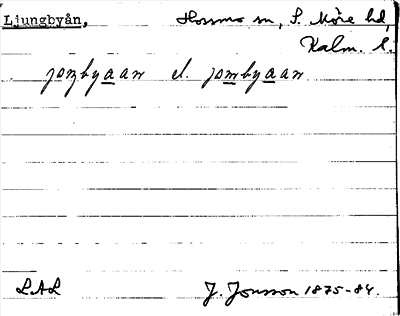 Ljungbyån, Hossmo sn, S. Möre hd,
Kalm. l.
joŋbyaan el. jombyaan
LAL J. Jonsson 1875-84.